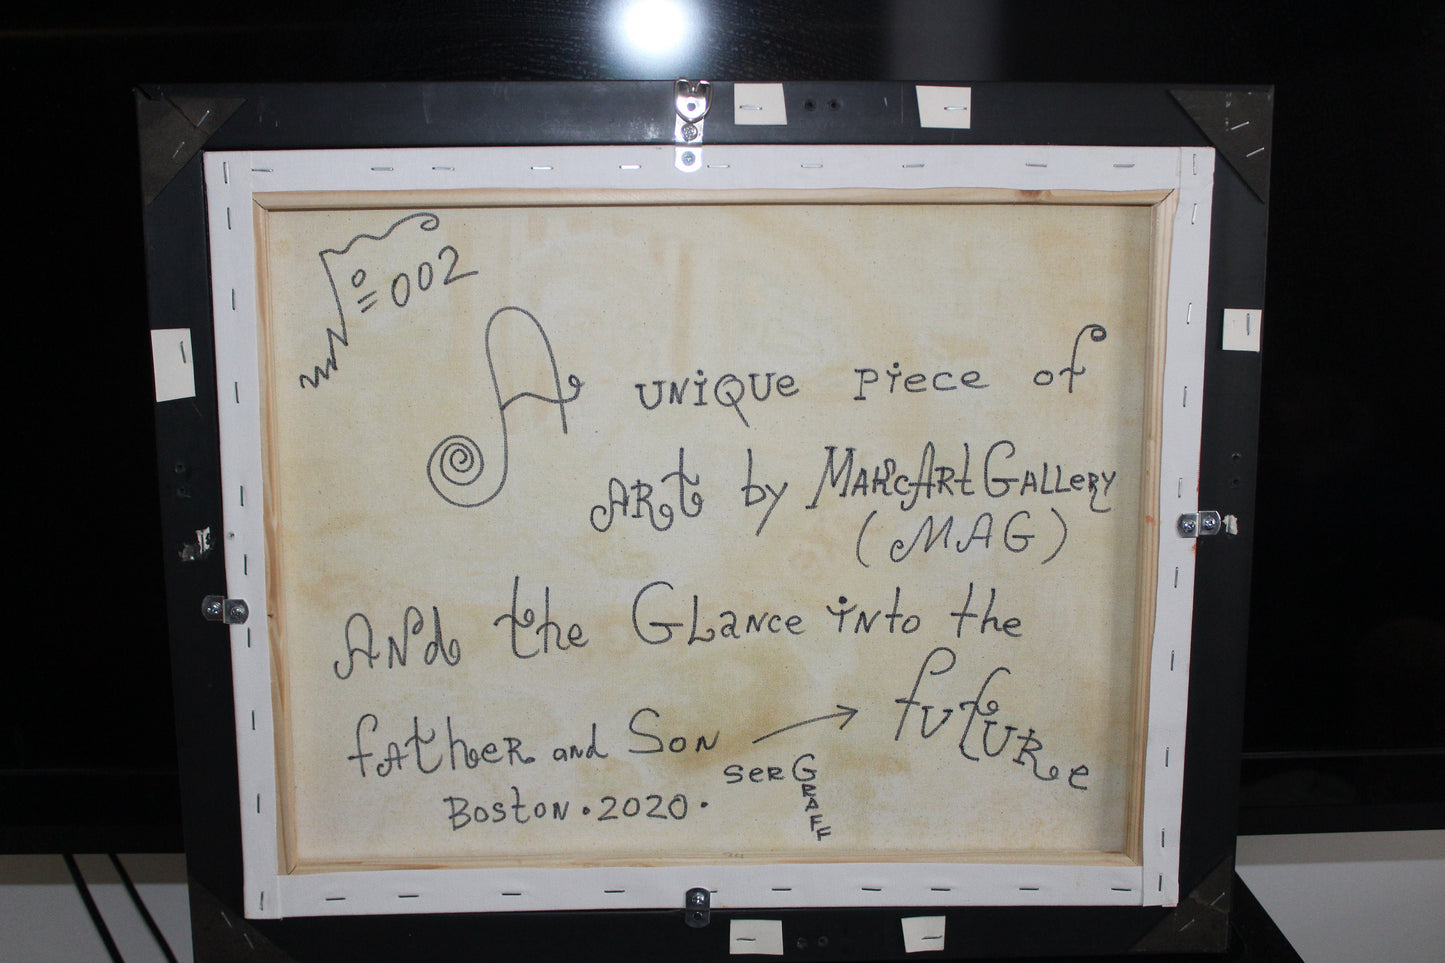 №002
A unique piece of
Art by MarcArtGallery
(MAG)
And the Glance into the
future
father and Son →
serGraff
Boston • 2020 •